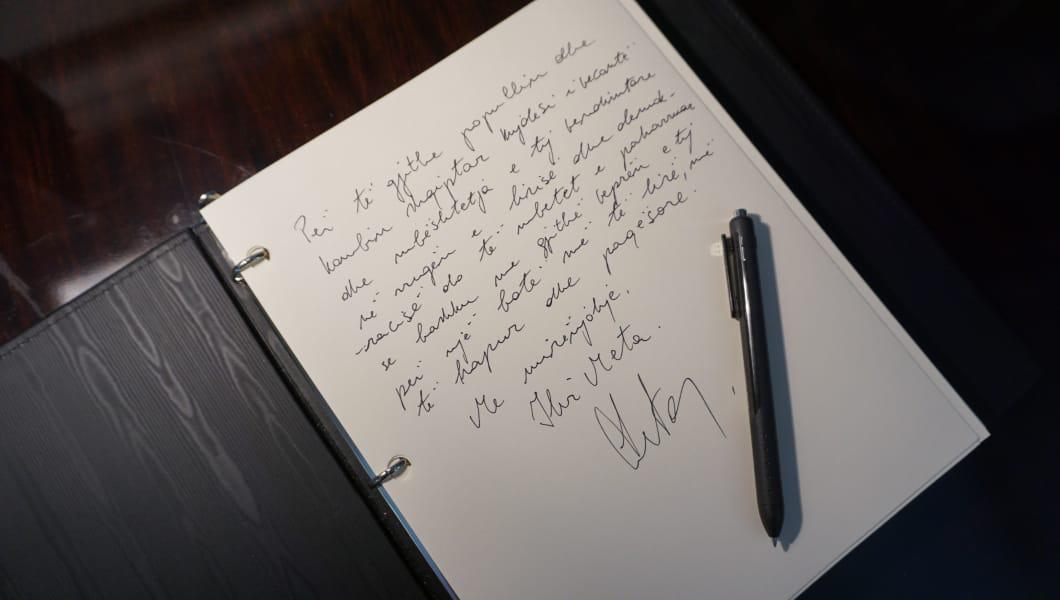 Për të gjithë popullin dhe
kombin shqiptar kujdesi i veçantë
dhe mbështetja e tij vendimtare
në rrugën e lirisë dhe demok-
racisë do të mbetet e paharruar
se bashku me gjithë veprën e tij
për një botë më të lirë, më
të hapur dhe paqësore.
Me mirënjohje,
Ilir Meta.